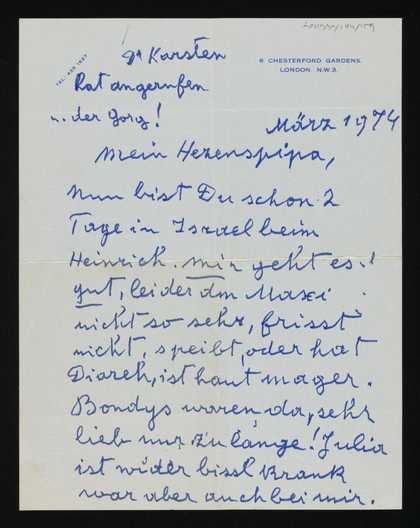 6 CHESTERFORD GARDENS.
LONDON N.W.3.
Dr Karsten
Rat angerufen
u. der Gorg!
März 1974
Mein Hexenspipa,
Nun bist Du schon 2
Tage in Israel beim
Heinrich. mir geht es
gut, leider dem Maxi
nicht so sehr, frisst
nicht, speibt, oder hat
Diareh, ist haut mager.
Bondys waren da, sehr
lieb nur zu lange! Julia
ist wider bissl krank
war aber auch bei mir.